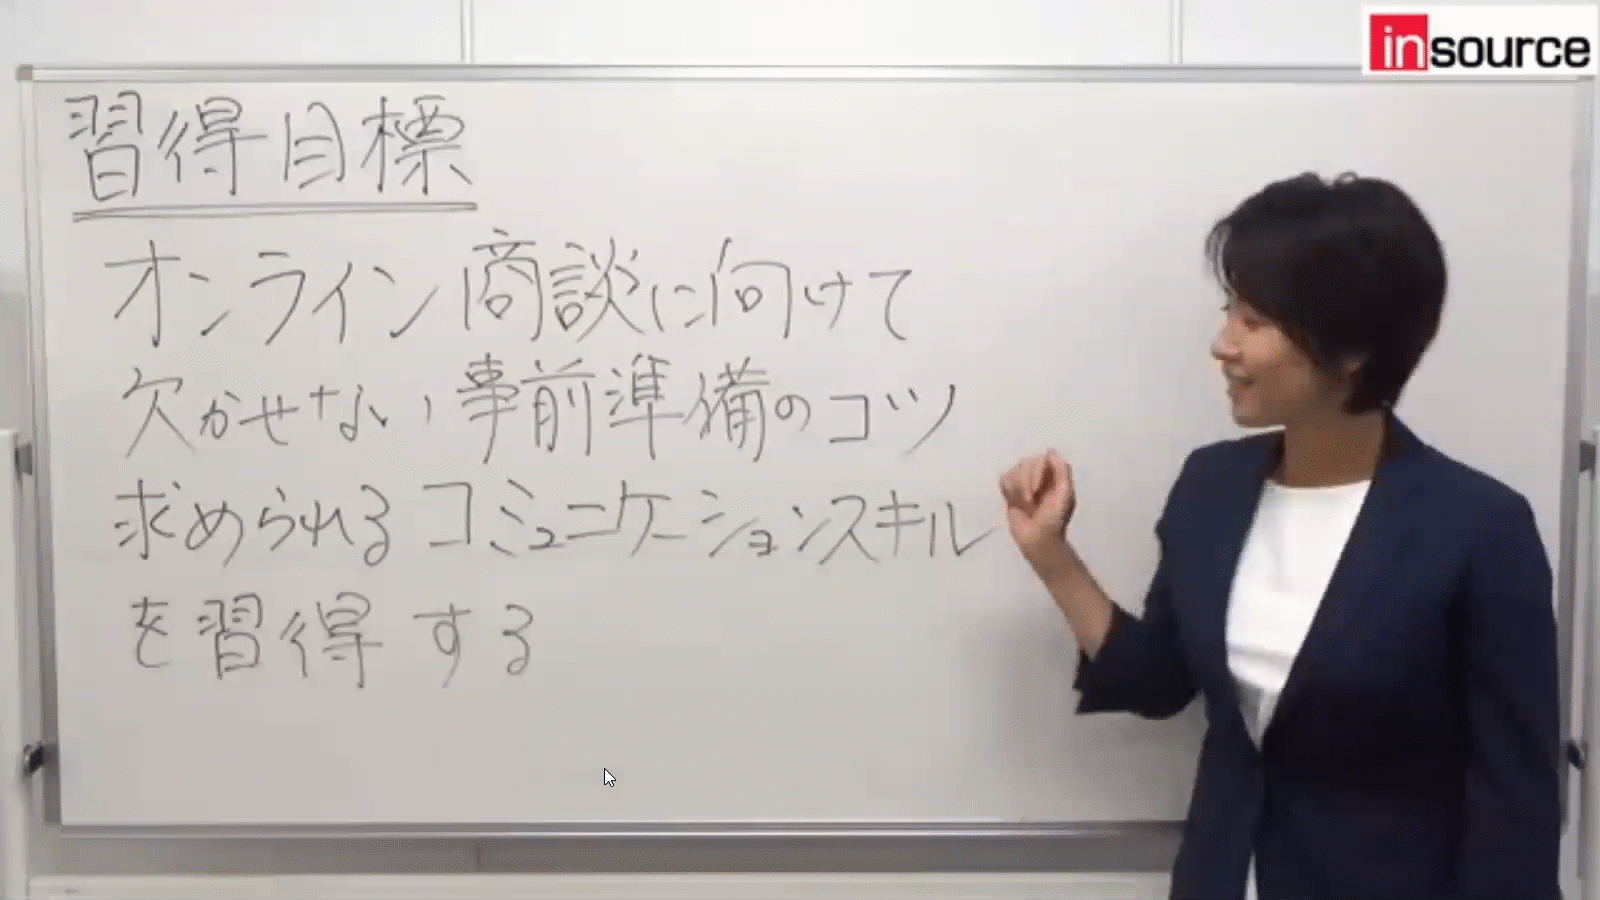 insource
習得目標
オンライン商談に向けて
欠かせない事前準備のコツ
求められるコミュニケーションスキル
を習得する